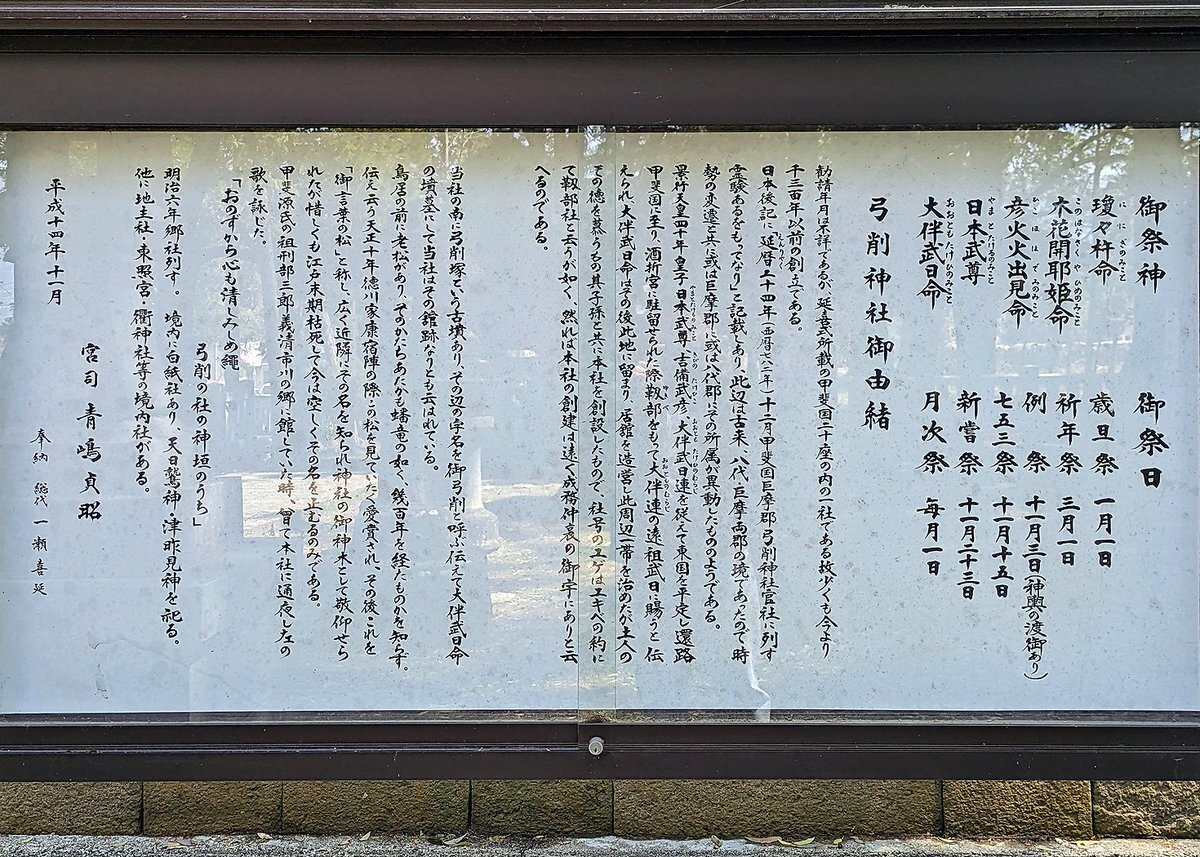 御祭神
瓊々杵命
木花開耶姫命
彦火火出見命
日本武尊
大伴武日命
御祭日
歳旦祭 一月一日
祈年祭 三月一日
例祭 十一月三日(神輿の渡御あり)
七五三祭 十一月十五日
新嘗祭 十一月二十三日
月次祭 毎月一日
弓削神社御由緒
勧請年月は不詳であるが、延喜式所載の甲斐国二十座の内の一社である故少くも今より
千三百年以前の創立である。
日本後記に「延暦二十四年(西暦七八二年)十二月甲斐国巨摩郡弓削神社官社に列す
霊験あるをもってなり」と記載しあり、此辺は古来、八代巨摩両郡の境であったので時
勢の変遷と共に或は巨摩郡に或は八代郡にその所属が異動したもののようである。
景行天皇四十年皇子日本武尊、吉備武彦、大伴武日連を従えて東国を平定し還路
甲斐国に至り酒折宮に駐留せられた際靱部をもって大伴連の遠祖武日に賜うと伝
えられ、大伴武日命はその後此地に留まり、居館を造営し此周辺一帯を治めたが土人の
その徳を慕うもの其子孫と共に本社を創設したもので、社号のユゲはユキベの約に
て靱部社と云うが如く、然れば本社の創建は遠く成務仲哀の御宇にありと云
へるのである。
当社の南に弓削塚という古墳あり、その辺の字名を御弓削と呼ぶ伝えて大伴武日命
の墳墓にして当社はその館跡なりとも云はれている。
鳥居の前に老松があり、そのかたちあたかも蟠竜の如く、幾百年を経たものかを知らず。
伝え云う天正十年徳川家康宿陣の際この松を見ていたく愛賞され、その後これを
「御言葉の松」と称し、広く近隣にその名を知られ神社の御神木として敬仰せら
れたが惜しくも江戸末期枯死して今は空しくその名を止むるのみである。
甲斐源氏の祖刑部三郎義清市川の郷に館していた時、曽て本社に通夜し左の
歌を詠じた。
「おのずから心も清しみしめ縄
弓削の社の神垣のうち」
明治六年郷社列す。境内に白紙社あり、天日鷲神・津昨見神を祀る。
他に地主社・東照宮・衢神社等の境内社がある。
平成十四年十一月
宮司 青嶋貞昭
奉納 総代 一瀬喜延